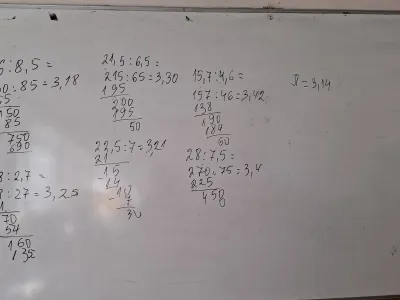 :8,5=
0:85=3,18
150
85
750
690
:2,7=
:27=3,25
70
54
160
135
21,5:6,5=
215:65=3,30
195
200
195
50
22,5:7=3,21
21
15
14
10
7
30
15,7:4,6=
157:46=3,42
138
190
184
60
28:7,5=
270:75=3,4
225
450
π=3,14